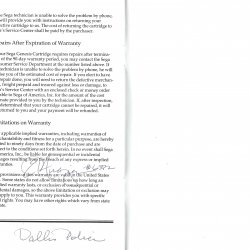 Sega technician is unable to solve the problem by phone,
will provide you with instructions on returning your
ective cartridge to us. The cost of returning the cartridge to
's Service Center shall be paid by the purchaser.
pairs After Expiration of Warranty
our Sega Genesis Cartridge requires repairs after termina-
of the 90-day warranty period, you may contact the Sega
sumer Service Department at the number listed above. If
technician is unable to solve the problem by phone, he will
ise you of the estimated cost of repair. If you elect to have
repair done, you will need to return the defective merchan-
, freight prepaid and insured against loss or damage, to
's Service Center with an enclosed check or money order
able to Sega of America, Inc. for the amount of the cost
mate provided to you by the technician. If, after inspection,
determined that your cartridge cannot be repaired, it will
eturned to you and your payment will be refunded.
itations on Warranty
applicable implied warranties, including warranties of
chantability and fitness for a particular purpose, are hereby
ted to ninety days from the date of purchase and are
ect to the conditions set forth herein. In no event shall Sega
merica, Inc., be liable for consequential or incidental
ages resulting from the breach of any express or implied
provisions of this warranty are valid in the United States
. Some states do not allow limitations on how long
mplied warranty lasts, or exclusion of consequential or
dental damages, so the above limitation or exclusion may
apply to you. This warranty provides you with specific
l rights. You may have other rights which vary from state
ate.